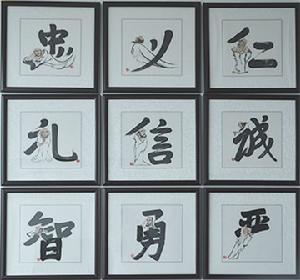 忠 义 仁
礼 信 诚
智 勇 严